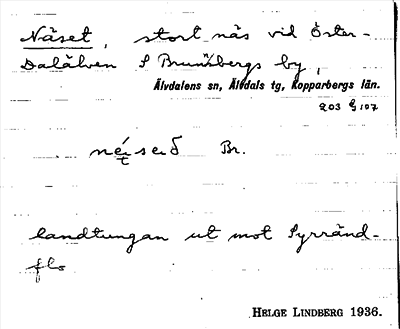 Näset, stort näs vid Öster-
Dalälven S Brunnsbergs by,
Älvdalens sn, Älvdals tg, Kopparbergs län.
203 G 107
néiseið Br.
landtungan ut mot Syrränd-
flo
HELGE LINDBERG 1936.